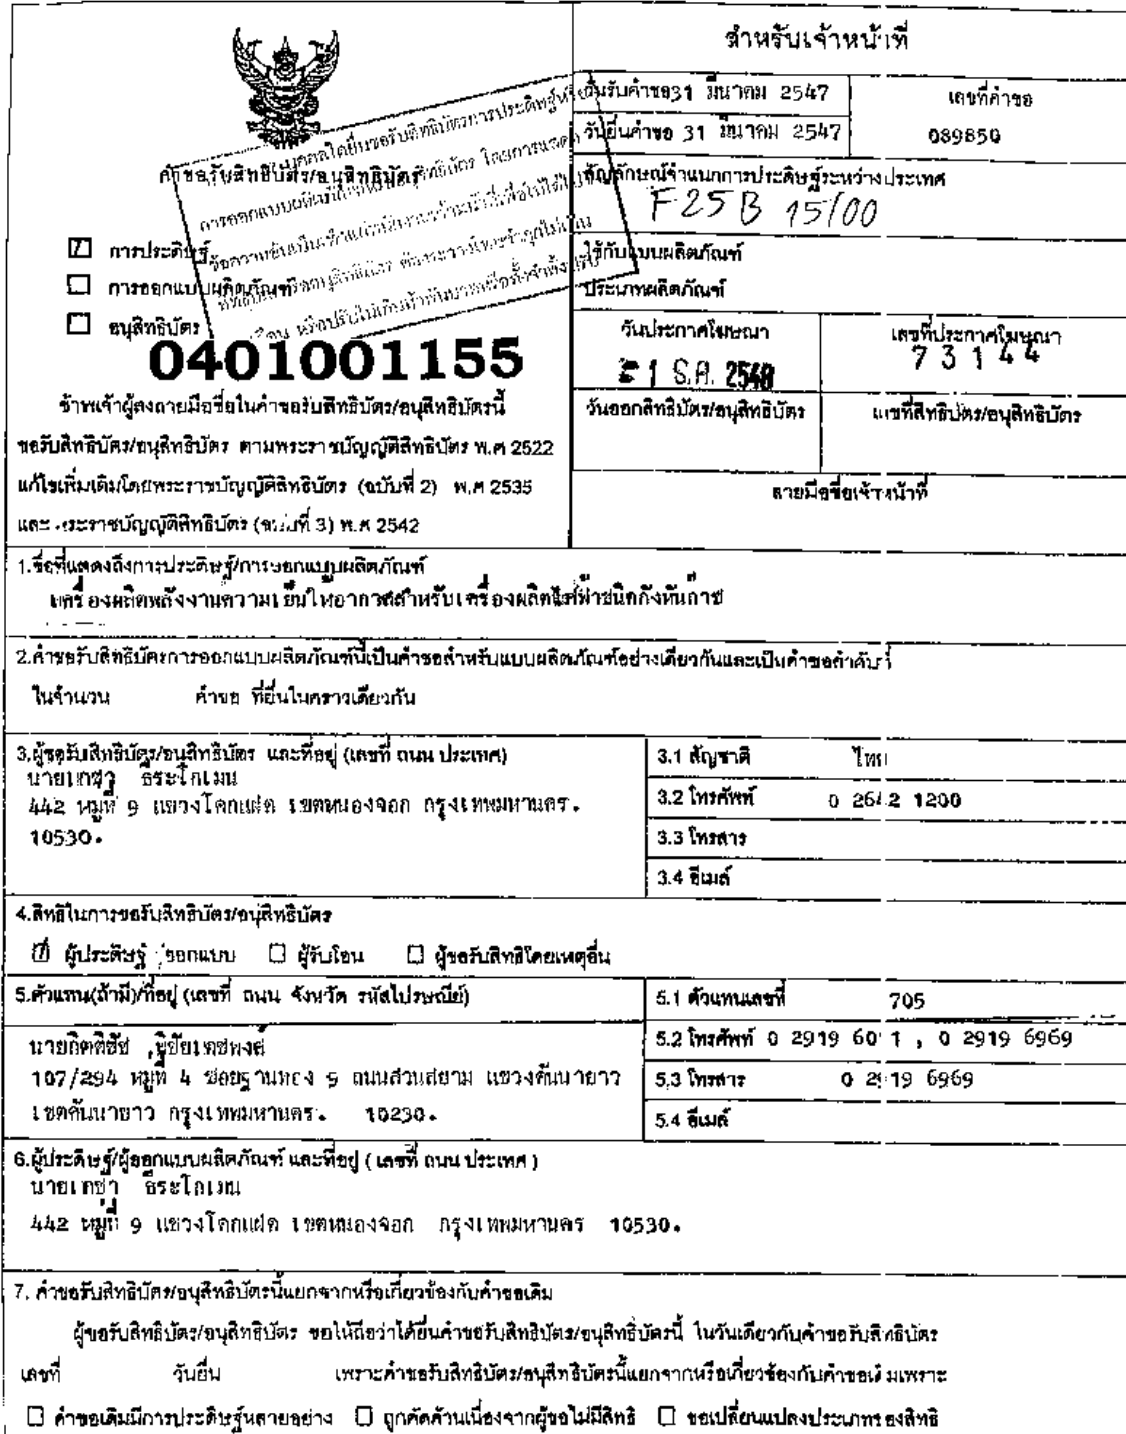 สำหรับเจ้าหน้าที่
วันรับคำขอ 31 มีนาคม 2547
เลขที่คำขอ
วันยื่นคำขอ 31 มีนาคม 2547
089850
สัญลักษณ์จำแนกการประดิษฐ์ระหว่างประเทศ
F25B 15/00
คำขอรับสิทธิบัตร/อนุสิทธิบัตร
☑ การประดิษฐ์
☐ การออกแบบผลิตภัณฑ์
☐ อนุสิทธิบัตร
ใช้กับแบบผลิตภัณฑ์
ประเภทผลิตภัณฑ์
วันประกาศโฆษณา
เลขที่ประกาศโฆษณา
73144
0401001155
ข้าพเจ้าผู้ลงลายมือชื่อในคำขอรับสิทธิบัตร/อนุสิทธิบัตรนี้
ขอรับสิทธิบัตร/อนุสิทธิบัตร ตามพระราชบัญญัติสิทธิบัตร พ.ศ 2522
แก้ไขเพิ่มเติมโดยพระราชบัญญัติสิทธิบัตร (ฉบับที่ 2) พ.ศ 2535
และพระราชบัญญัติสิทธิบัตร (ฉบับที่ 3) พ.ศ 2542
วันออกสิทธิบัตร/อนุสิทธิบัตร
เลขที่สิทธิบัตร/อนุสิทธิบัตร
ลายมือชื่อเจ้าหน้าที่
1.ชื่อที่แสดงถึงการประดิษฐ์/การออกแบบผลิตภัณฑ์
เครื่องผลิตพลังงานความเย็นให้อากาศสำหรับเครื่องผลิตไฟฟ้าชนิดกังหันก๊าซ
2.คำขอรับสิทธิบัตรการออกแบบผลิตภัณฑ์นี้เป็นคำขอสำหรับแบบผลิตภัณฑ์อย่างเดียวกันและเป็นคำขอลำดับที่
ในจำนวน คำขอ ที่ยื่นในคราวเดียวกัน
3.ผู้ขอรับสิทธิบัตร/อนุสิทธิบัตร และที่อยู่ (เลขที่ ถนน ประเทศ)
นายเกชา ธีระโกเมน
442 หมู่ที่ 9 แขวงโคกแฝด เขตหนองจอก กรุงเทพมหานคร.
10530.
3.1 สัญชาติ ไทย
3.2 โทรศัพท์ 0 2642 1200
3.3 โทรสาร
3.4 อีเมล์
4.สิทธิในการขอรับสิทธิบัตร/อนุสิทธิบัตร
☑ ผู้ประดิษฐ์/ออกแบบ ☐ ผู้รับโอน ☐ ผู้ขอรับสิทธิโดยเหตุอื่น
5.ตัวแทน(ถ้ามี)/ที่อยู่ (เลขที่ ถนน จังหวัด รหัสไปรษณีย์)
107/294 หมู่ที่ 4 ซอยฐานทอง 9 ถนนสวนสยาม แขวงคันนายาว
เขตคันนายาว กรุงเทพมหานคร. 10230.
5.1 ตัวแทนเลขที่ 705
5.2 โทรศัพท์ 0 2919 , 0 2919 6969
5.3 โทรสาร 0 2919 6969
5.4 อีเมล์
6.ผู้ประดิษฐ์/ผู้ออกแบบผลิตภัณฑ์ และที่อยู่ ( เลขที่ ถนน ประเทศ )
นายเกชา ธีระโกเมน
442 หมู่ที่ 9 แขวงโคกแฝด เขตหนองจอก กรุงเทพมหานคร 10530.
7. คำขอรับสิทธิบัตร/อนุสิทธิบัตรนี้แยกจากหรือเกี่ยวข้องกับคำขอเดิม
ผู้ขอรับสิทธิบัตร/อนุสิทธิบัตร ขอให้ถือว่าได้ยื่นคำขอรับสิทธิบัตร/อนุสิทธิบัตรนี้ ในวันเดียวกับคำขอรับสิทธิบัตร
เลขที่ วันยื่น เพราะคำขอรับสิทธิบัตร/อนุสิทธิบัตรนี้แยกจากหรือเกี่ยวข้องกับคำขอเดิมเพราะ
☐ คำขอเดิมมีการประดิษฐ์หลายอย่าง ☐ ถูกคัดค้านเนื่องจากผู้ขอไม่มีสิทธิ ☐ ขอเปลี่ยนแปลงประเภทของสิทธิ